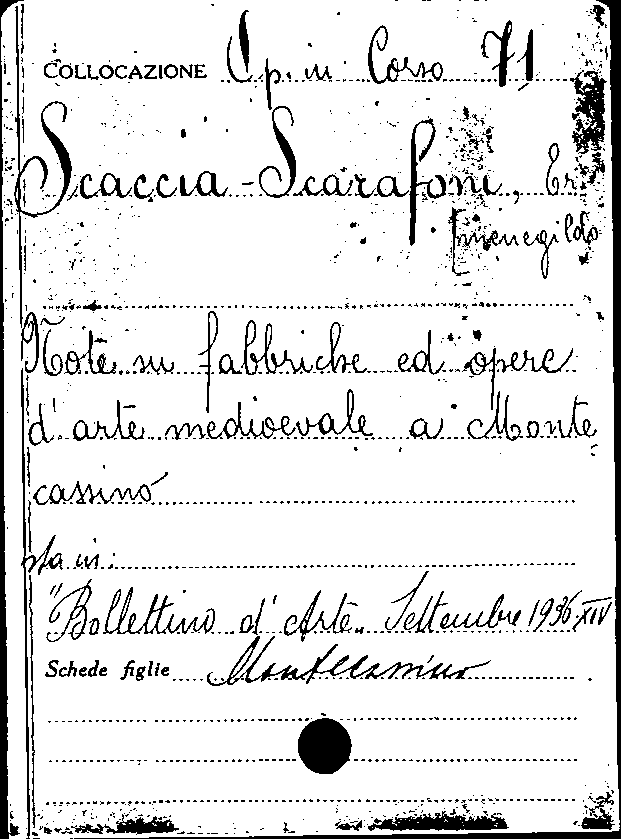 COLLOCAZIONE Op. in Corso 71
Scaccia-Scarafoni, Er
[menegildo
Note su fabbriche ed opere
d'arte medioevale a Monte
cassino
sta in:
"Bollettino d'Arte„ Settembre 1936-XIV
Schede figlie Montecassino